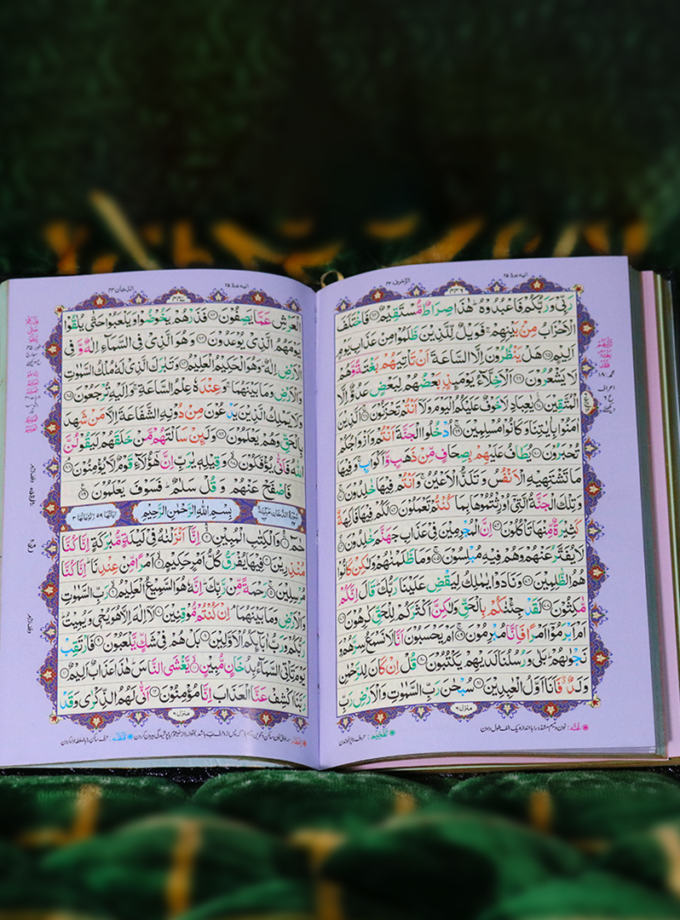 الزخرف ٤٣
اليه يرد ٢٥
رَبِّيْ وَرَبُّكُمْ فَاعْبُدُوْهُ ؕ هٰذَا صِرَاطٌ مُّسْتَقِيْمٌ ۝ فَاخْتَلَفَ
الْاَحْزَابُ مِنْۢ بَيْنِهِمْ ۚ فَوَيْلٌ لِّلَّذِيْنَ ظَلَمُوْا مِنْ عَذَابِ يَوْمٍ
اَلِيْمٍ ۝ هَلْ يَنْظُرُوْنَ اِلَّا السَّاعَةَ اَنْ تَاْتِيَهُمْ بَغْتَةً وَّهُمْ
لَا يَشْعُرُوْنَ ۝ اَلْاَخِلَّآءُ يَوْمَئِذٍۭ بَعْضُهُمْ لِبَعْضٍ عَدُوٌّ اِلَّا
الْمُتَّقِيْنَ ۝ يٰعِبَادِ لَا خَوْفٌ عَلَيْكُمُ الْيَوْمَ وَلَاۤ اَنْتُمْ تَحْزَنُوْنَ ۝ اَلَّذِيْنَ
اٰمَنُوْا بِاٰيٰتِنَا وَكَانُوْا مُسْلِمِيْنَ ۝ اُدْخُلُوا الْجَنَّةَ اَنْتُمْ وَاَزْوَاجُكُمْ
تُحْبَرُوْنَ ۝ يُطَافُ عَلَيْهِمْ بِصِحَافٍ مِّنْ ذَهَبٍ وَّاَكْوَابٍ ۚ وَفِيْهَا
مَا تَشْتَهِيْهِ الْاَنْفُسُ وَتَلَذُّ الْاَعْيُنُ ۚ وَاَنْتُمْ فِيْهَا خٰلِدُوْنَ ۝
وَتِلْكَ الْجَنَّةُ الَّتِيْۤ اُوْرِثْتُمُوْهَا بِمَا كُنْتُمْ تَعْمَلُوْنَ ۝ لَكُمْ فِيْهَا فَاكِهَةٌ
كَثِيْرَةٌ مِّنْهَا تَاْكُلُوْنَ ۝ اِنَّ الْمُجْرِمِيْنَ فِيْ عَذَابِ جَهَنَّمَ خٰلِدُوْنَ ۝
لَا يُفَتَّرُ عَنْهُمْ وَهُمْ فِيْهِ مُبْلِسُوْنَ ۝ وَمَا ظَلَمْنٰهُمْ وَلٰكِنْ كَانُوْا
هُمُ الظّٰلِمِيْنَ ۝ وَنَادَوْا يٰمٰلِكُ لِيَقْضِ عَلَيْنَا رَبُّكَ ؕ قَالَ اِنَّكُمْ
مّٰكِثُوْنَ ۝ لَقَدْ جِئْنٰكُمْ بِالْحَقِّ وَلٰكِنَّ اَكْثَرَكُمْ لِلْحَقِّ كٰرِهُوْنَ ۝
اَمْ اَبْرَمُوْۤا اَمْرًا فَاِنَّا مُبْرِمُوْنَ ۝ اَمْ يَحْسَبُوْنَ اَنَّا لَا نَسْمَعُ سِرَّهُمْ وَ
نَجْوٰىهُمْ ؕ بَلٰى وَرُسُلُنَا لَدَيْهِمْ يَكْتُبُوْنَ ۝ قُلْ اِنْ كَانَ لِلرَّحْمٰنِ
وَلَدٌ ۖ فَاَنَا اَوَّلُ الْعٰبِدِيْنَ ۝ سُبْحٰنَ رَبِّ السَّمٰوٰتِ وَالْاَرْضِ رَبِّ
منزل ٦
اليه يرد ٢٥
الدخان ٤٤
الْعَرْشِ عَمَّا يَصِفُوْنَ ۝ فَذَرْهُمْ يَخُوْضُوْا وَيَلْعَبُوْا حَتّٰى يُلٰقُوْا
يَوْمَهُمُ الَّذِيْ يُوْعَدُوْنَ ۝ وَهُوَ الَّذِيْ فِي السَّمَآءِ اِلٰهٌ وَّفِي
الْاَرْضِ اِلٰهٌ ؕ وَهُوَ الْحَكِيْمُ الْعَلِيْمُ ۝ وَتَبٰرَكَ الَّذِيْ لَهٗ مُلْكُ السَّمٰوٰتِ
وَالْاَرْضِ وَمَا بَيْنَهُمَا ۚ وَعِنْدَهٗ عِلْمُ السَّاعَةِ ۚ وَاِلَيْهِ تُرْجَعُوْنَ ۝
وَلَا يَمْلِكُ الَّذِيْنَ يَدْعُوْنَ مِنْ دُوْنِهِ الشَّفَاعَةَ اِلَّا مَنْ شَهِدَ
بِالْحَقِّ وَهُمْ يَعْلَمُوْنَ ۝ وَلَئِنْ سَاَلْتَهُمْ مَّنْ خَلَقَهُمْ لَيَقُوْلُنَّ
اللّٰهُ فَاَنّٰى يُؤْفَكُوْنَ ۝ وَقِيْلِهٖ يٰرَبِّ اِنَّ هٰۤؤُلَآءِ قَوْمٌ لَّا يُؤْمِنُوْنَ ۝
فَاصْفَحْ عَنْهُمْ وَقُلْ سَلٰمٌ ؕ فَسَوْفَ يَعْلَمُوْنَ ۝
بِسْمِ اللّٰهِ الرَّحْمٰنِ الرَّحِيْمِ
حٰمٓ ۝ وَالْكِتٰبِ الْمُبِيْنِ ۝ اِنَّاۤ اَنْزَلْنٰهُ فِيْ لَيْلَةٍ مُّبٰرَكَةٍ اِنَّا كُنَّا
مُنْذِرِيْنَ ۝ فِيْهَا يُفْرَقُ كُلُّ اَمْرٍ حَكِيْمٍ ۝ اَمْرًا مِّنْ عِنْدِنَا ؕ اِنَّا كُنَّا
مُرْسِلِيْنَ ۝ رَحْمَةً مِّنْ رَّبِّكَ ؕ اِنَّهٗ هُوَ السَّمِيْعُ الْعَلِيْمُ ۝ رَبِّ السَّمٰوٰتِ
وَالْاَرْضِ وَمَا بَيْنَهُمَا ۘ اِنْ كُنْتُمْ مُّوْقِنِيْنَ ۝ لَاۤ اِلٰهَ اِلَّا هُوَ يُحْيٖ وَيُمِيْتُ ؕ
رَبُّكُمْ وَرَبُّ اٰبَآئِكُمُ الْاَوَّلِيْنَ ۝ بَلْ هُمْ فِيْ شَكٍّ يَّلْعَبُوْنَ ۝ فَارْتَقِبْ
يَوْمَ تَاْتِي السَّمَآءُ بِدُخَانٍ مُّبِيْنٍ ۝ يَّغْشَى النَّاسَ ؕ هٰذَا عَذَابٌ اَلِيْمٌ ۝
رَبَّنَا اكْشِفْ عَنَّا الْعَذَابَ اِنَّا مُؤْمِنُوْنَ ۝ اَنّٰى لَهُمُ الذِّكْرٰى وَقَدْ
منزل ٦